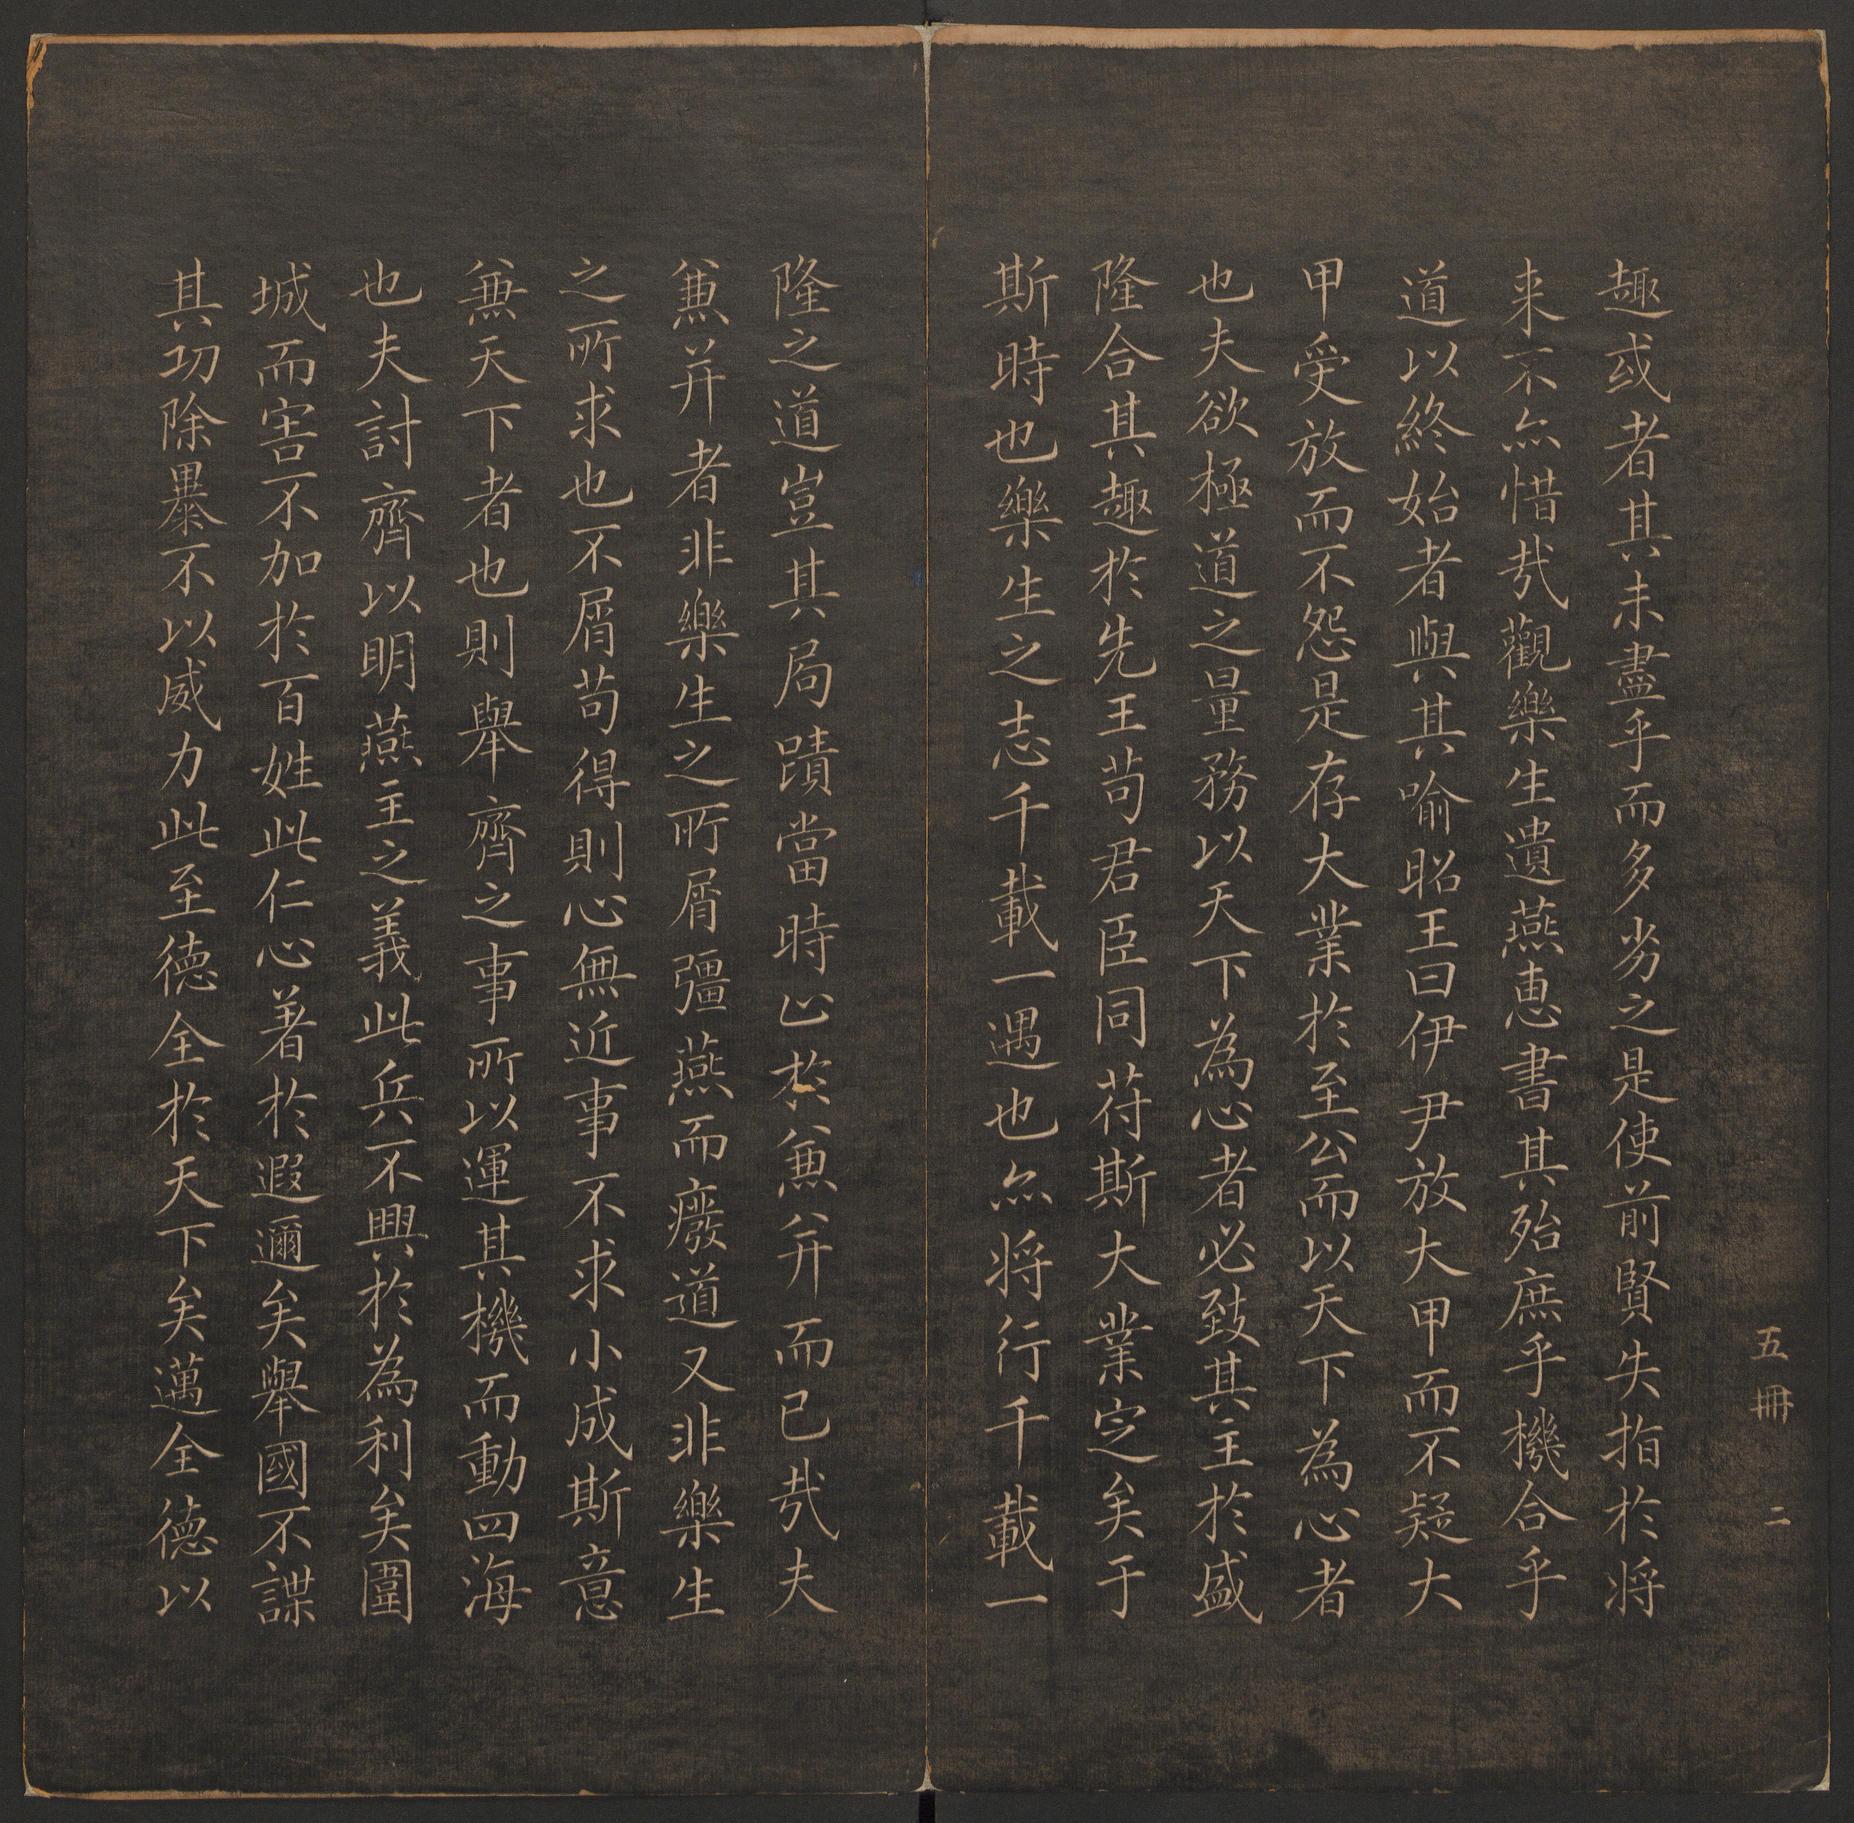 五冊 二
趣或者其未盡乎而多劣之是使前賢失指於将
来不亦惜哉觀樂生遺燕惠書其殆庶乎機合乎
道以終始者與其喻昭王曰伊尹放大甲而不疑大
甲受放而不怨是存大業於至公而以天下為心者
也夫欲極道之量務以天下為心者必致其主於盛
隆合其趣於先王苟君臣同苻斯大業定矣于
斯時也樂生之志千載一遇也亦将行千載一
隆之道豈其局蹟當時止於兼并而已哉夫
兼并者非樂生之所屑彊燕而癈道又非樂生
之所求也不屑苟得則心無近事不求小成斯意
兼天下者也則舉齊之事所以運其機而動四海
也夫討齊以明燕主之義此兵不興於為利矣圍
城而害不加於百姓此仁心著於遐邇矣舉國不謀
其功除暴不以威力此至德全於天下矣邁全德以